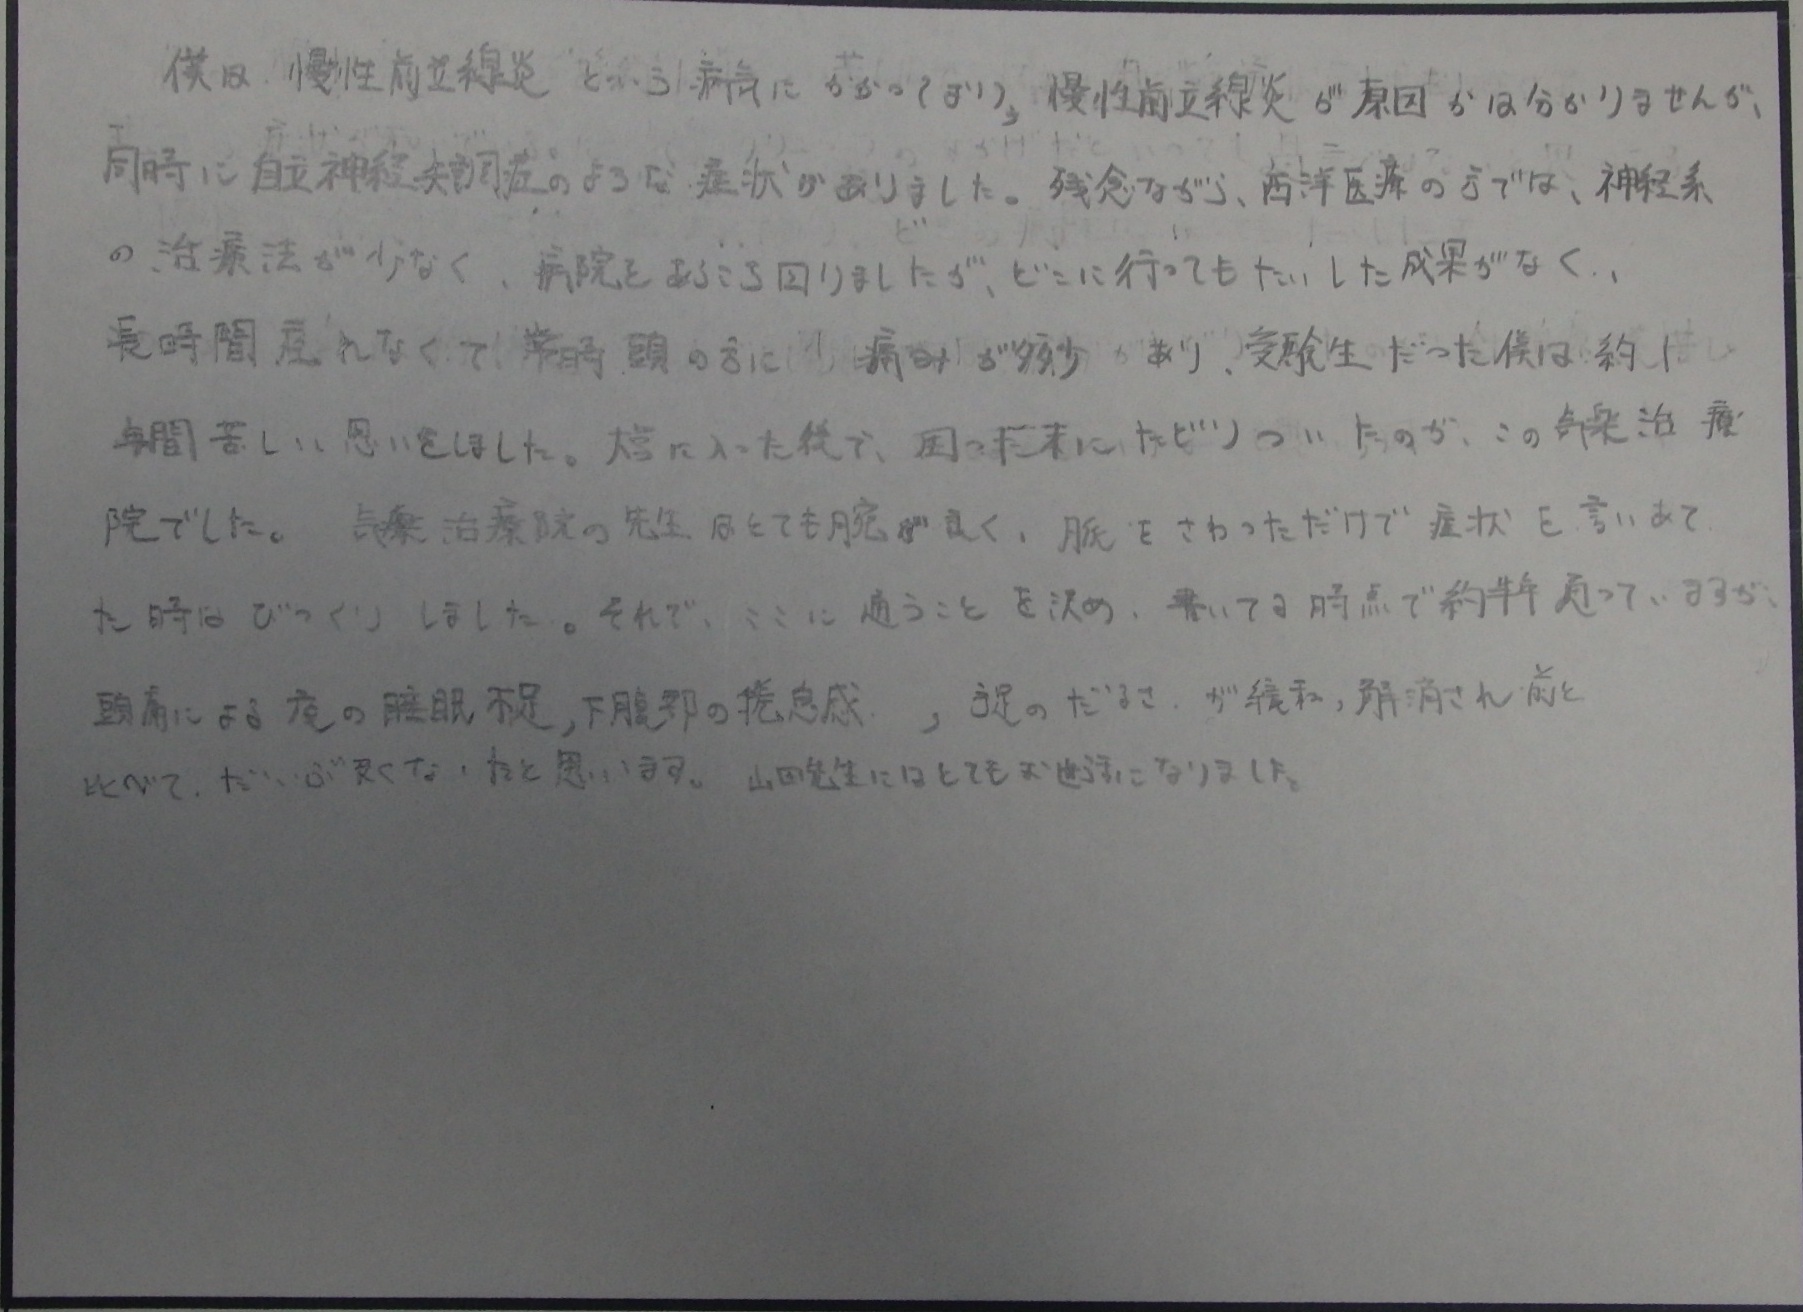 僕は、慢性前立線炎という病気にかかっており、慢性前立線炎が原因かは分かりませんが、
同時に自立神経失調症のような症状がありました。残念ながら、西洋医療の方では、神経系
の治療法が少なく、病院をあちこち回りましたが、どこに行ってもたいした成果がなく、
長時間座れなくて常時頭の方に痛みが多少あり、受験生だった僕は約1
年間苦しい思いをしました。大学に入った後で、困った末にたどりついたのが、この気楽治療
院でした。気楽治療院の先生はとても腕が良く、脈をさわっただけで症状を言いあて
た時はびっくりしました。それで、ここに通うことを決め、書いてる時点で約半年通っていますが、
頭痛による夜の睡眠不足,下腹部の倦怠感,手足のだるさが緩和,解消され前と
比べて、だいぶ良くなったと思います。山田先生にはとてもお世話になりました。